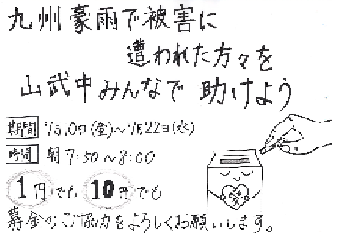 九州豪雨で被害に
遭われた方々を
山武中みんなで助けよう
期間 (金)~7月22日(水)
時間 朝7:50~8:00
1円でも10円でも
募金のご協力をよろしくお願いします。